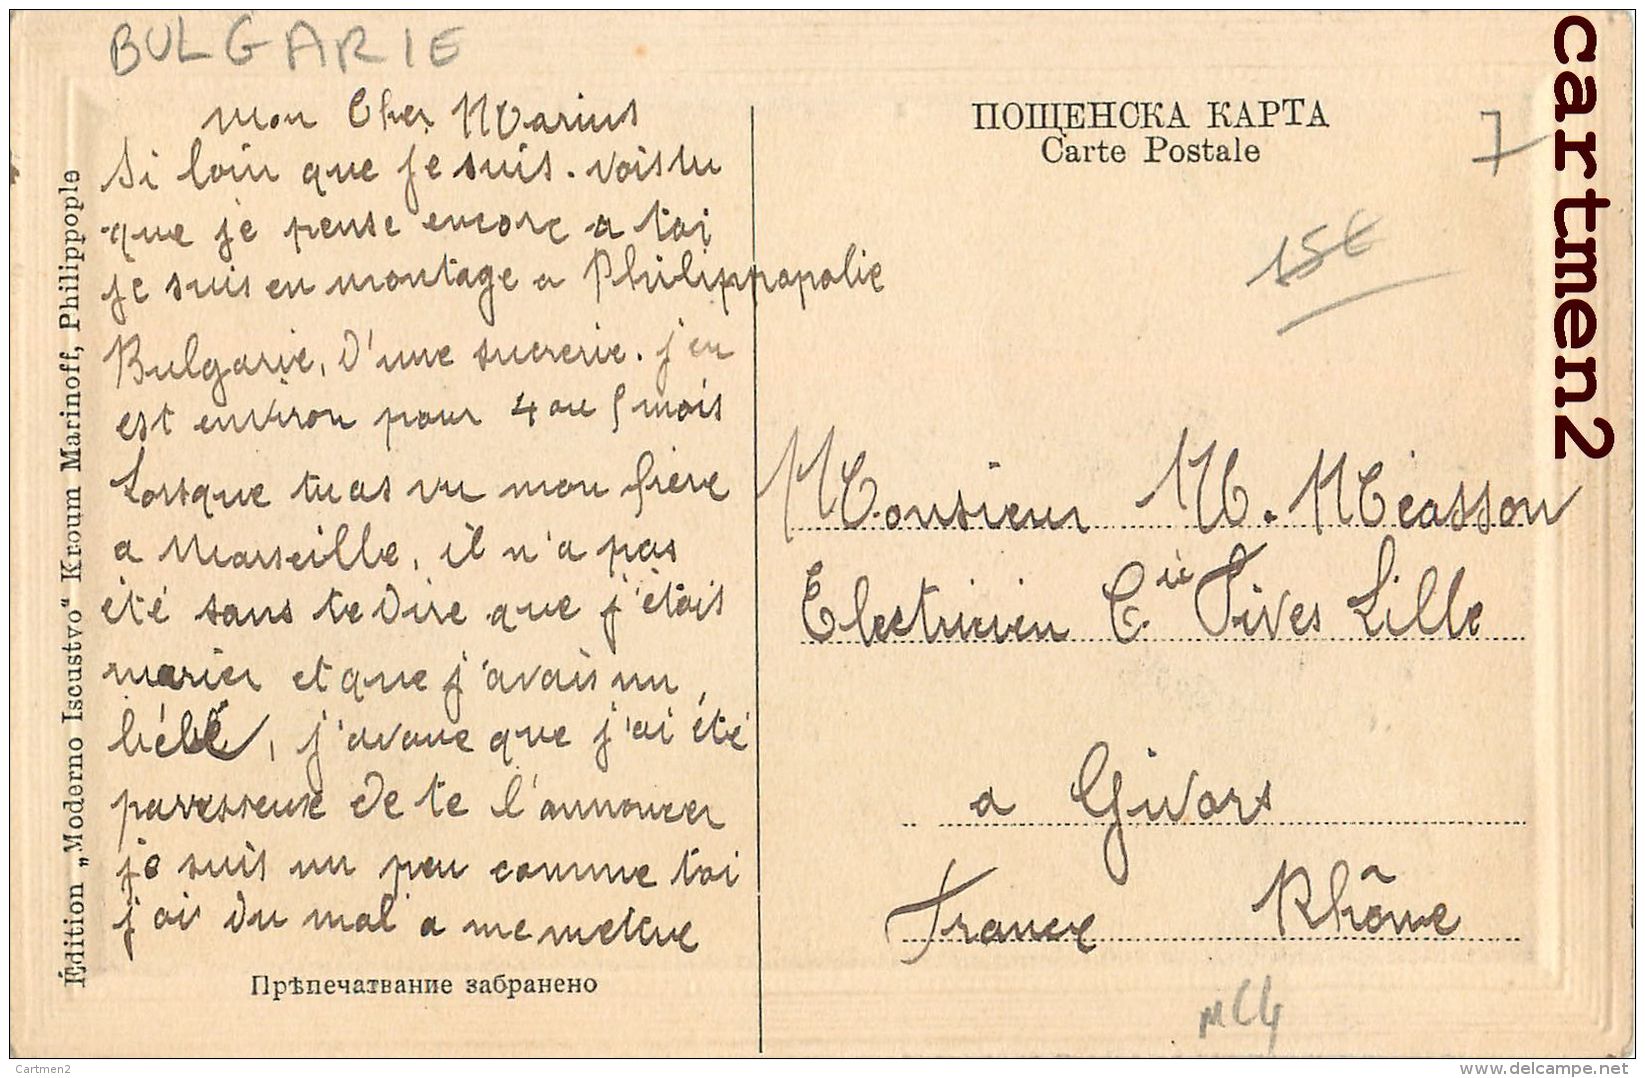 BULGARIE
mon Cher Marius
Si loin que je suis. vois tu
que je pense encore a toi
je suis en montage a Philippopolie
Bulgarie, d'une sucrerie. j'en
est environ pour 4 ou 5 mois
Lorsque tu as vu mon frère
a Marseille, il n'a pas
été sans te dire que j'étais
marier et que j'avais un
bébé, j'avoue que j'ai été
paresseux de te l'annoncer
je suis un peu comme toi
j'ai du mal a me mettre
Прѣпечатвание забранено
Édition „Moderno Iscustvo" Kroum Marinoff, Philippople
ПОЩЕНСКА КАРТА
Carte Postale
7
15€
Monsieur M. Méasson
Electricien Cie Fives Lille
a Givors
France Rhône
cartmen2
Cartmen2
delcampe.net